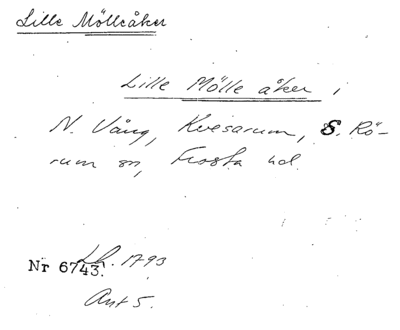 Lille Mölleåker
Lille Mölle åker i
N. Vång, Kvesarum, S. Rö-
rum sn, Frosta hd.
Lh. 1793
Nr 6743.
Akt 5.